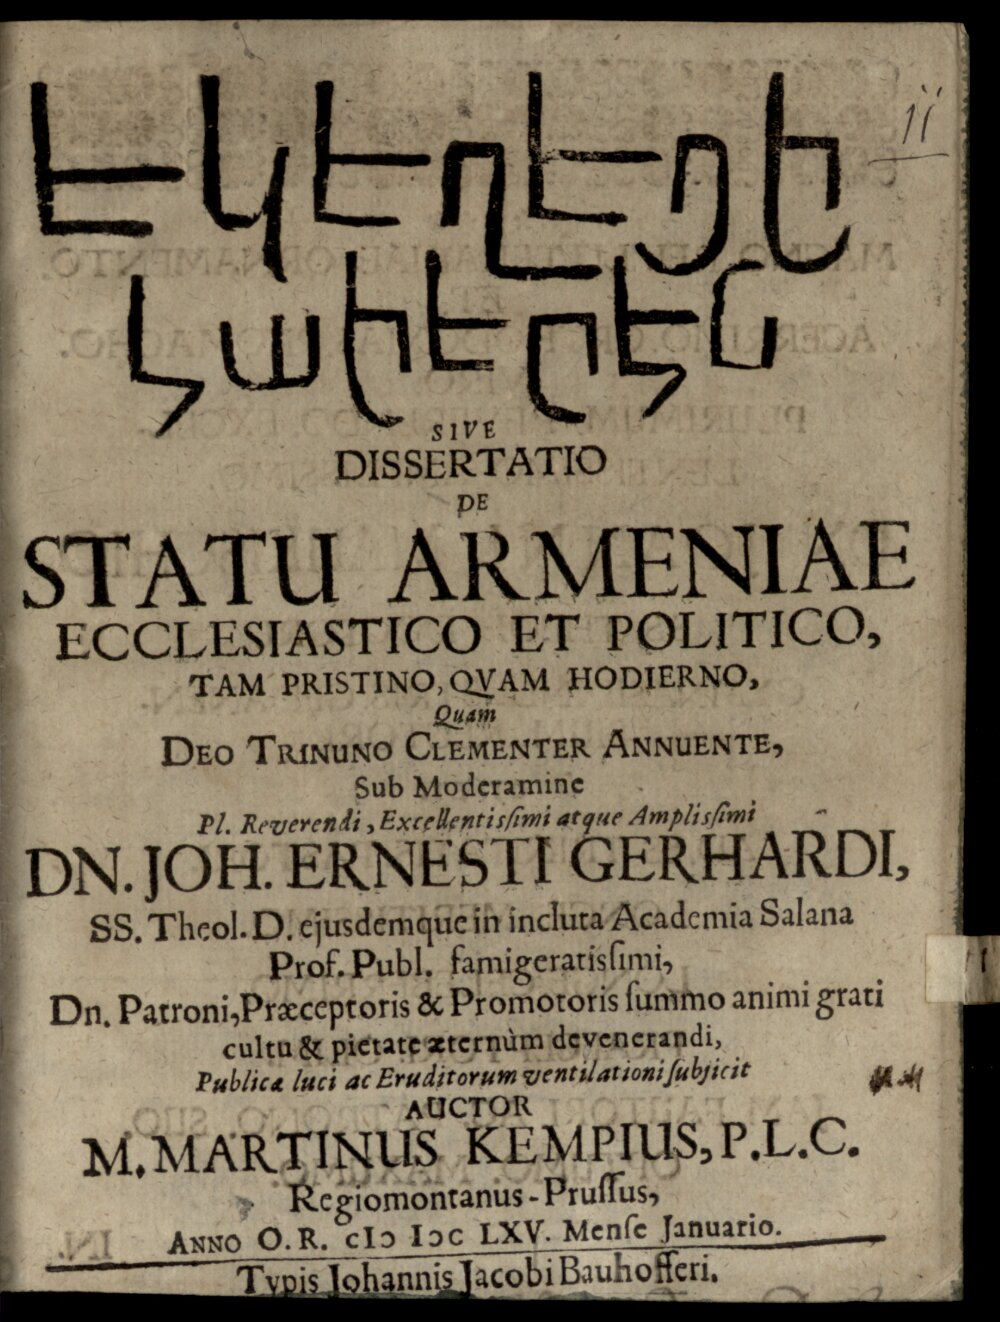 էկէղէցի
Հաիէրէն
SIVE
DISSERTATIO
DE
STATU ARMENIAE
ECCLESIASTICO ET POLITICO,
TAM PRISTINO, QVAM HODIERNO,
Quam
DEO TRINUNO CLEMENTER ANNUENTE,
Sub Moderamine
Pl. Reverendi, Excellentisſimi atque Amplisſimi
DN. JOH. ERNESTI GERHARDI,
SS. Theol. D. ejusdemque in incluta Academia Salana
Prof. Publ. famigeratisſimi,
Dn. Patroni, Præceptoris & Promotoris ſummo animi grati
cultu & pietate æternùm devenerandi,
Publicæ luci ac Eruditorum ventilationi ſubjicit
AUCTOR
M. MARTINUS KEMPIUS, P. L. C.
Regiomontanus-Pruſſus,
ANNO O. R. cIɔ Iɔc LXV. Menſe Januario.
Typis Johannis Jacobi Bauhofferi.